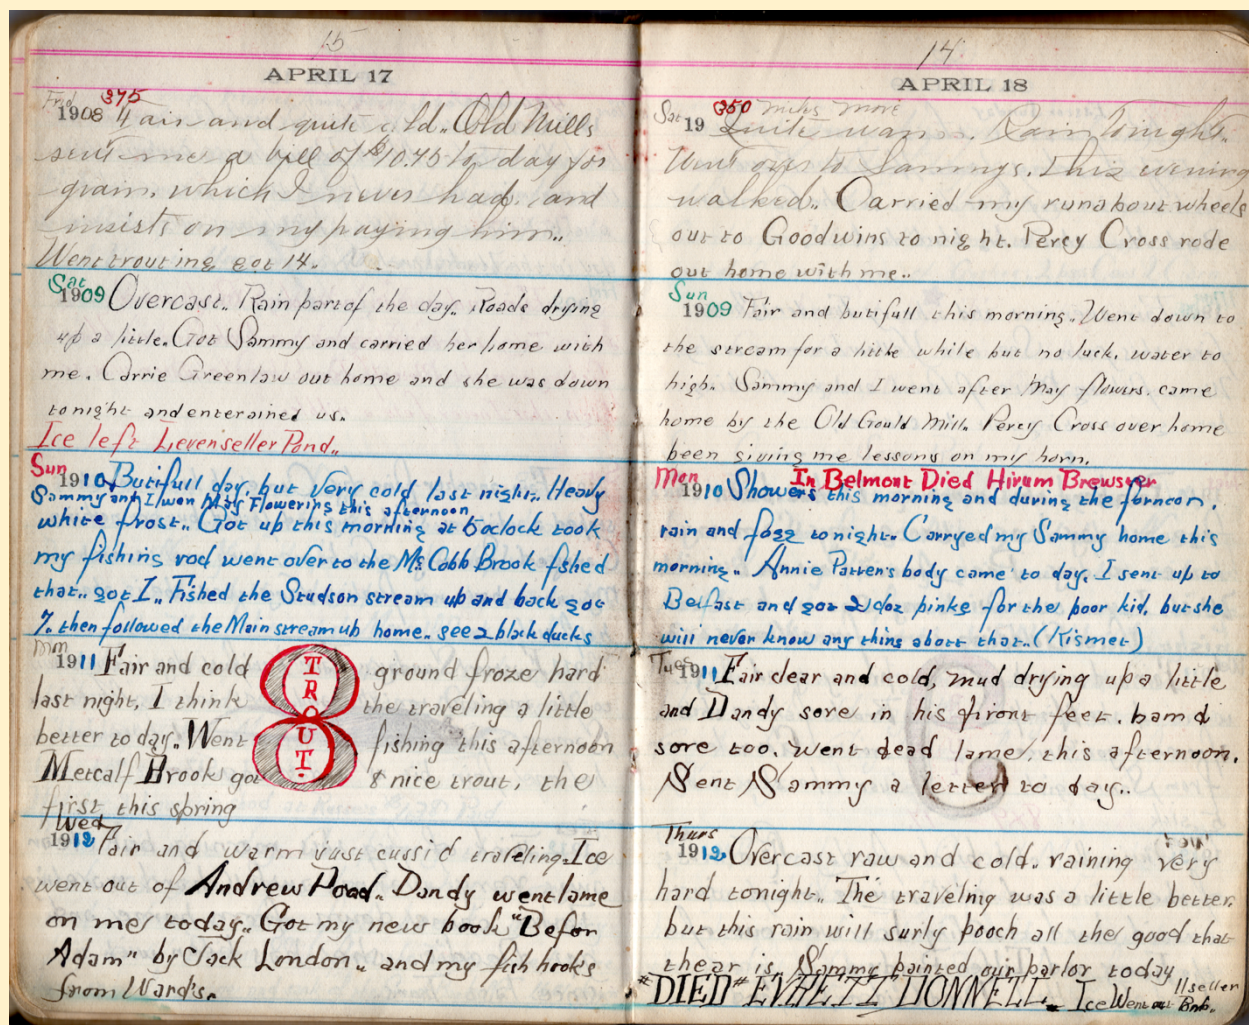 15
APRIL 17
Frid 375
1908 Fair and quite cold.. Old Mills
sent me a bill of $10.75 to day for
grain. which I never had. and
insists on my paying him..
Went trouting got 14.
Sat
1909 Overcast.. Rain part of the day. Roads drying
up a little. Got Sammy and carried her home with
me. Carrie Greenlaw out home and she was down
tonight and enterained us.
Ice left Levenseller Pond..
Sun
1910 Butifull day, but very cold last night.. Heavy
Sammy and I won May Flowering this afternoon
white frost.. Got up this morning at 5oclock took
my fishing rod went over to the Mc Cobb Brook fshed
that.. got 1.. Fished the Studson stream up and back got
7. then followed the Main stream up home.. see 2 black ducks
Mon
1911 Fair and cold ground froze hard
last night, I think the traveling a little
better to day.. Went fishing this afternoon
Metcalf Brook got 8 nice trout, the
first this spring
TROUT.
Wed
1912 Fair and warm just cussid traveling. Ice
went out of Andrew Pond.. Dandy went lame
on me today.. Got my new book "Befor
Adam" by Jack London.. and my fish hooks
from Ward's.
14
APRIL 18
Sat 350 miles more
19 Quite warm. Rain tonight.
Went over to Sammys. this evening
walked.. Carried my runabout wheels
out to Goodwins to night. Percy Cross rode
out home with me..
Sun
1909 Fair and butifull this morning.. Went down to
the stream for a little while but no luck. water to
high. Sammy and I went after May flowers. came
home by the Old Gould Mill. Percy Cross over home
been giving me lessons on my horn.
Mon In Belmont Died Hirum Brewster
1910 Showers this morning and during the forncon.
rain and fogg tonight.. Carryed my Sammy home this
morning.. Annie Patten's body came to day. I sent up to
Belfast and got 2 doz pinks for the poor kid, but she
will never know any thing abott that.. (Kismet)
Tues
1911 Fair clear and cold, mud drying up a little
and Dandy sore in his front feet. bam d
sore too. Went dead lame, this afternoon.
Sent Sammy a letter to day..
Thurs
1912 Overcast raw and cold. raining very
hard tonight.. The traveling was a little better.
but this rain will surly pooch all the good that
thear is. Sammy painted our parlor today
"DIED" EVRETT DONNELL.. Ice Went out